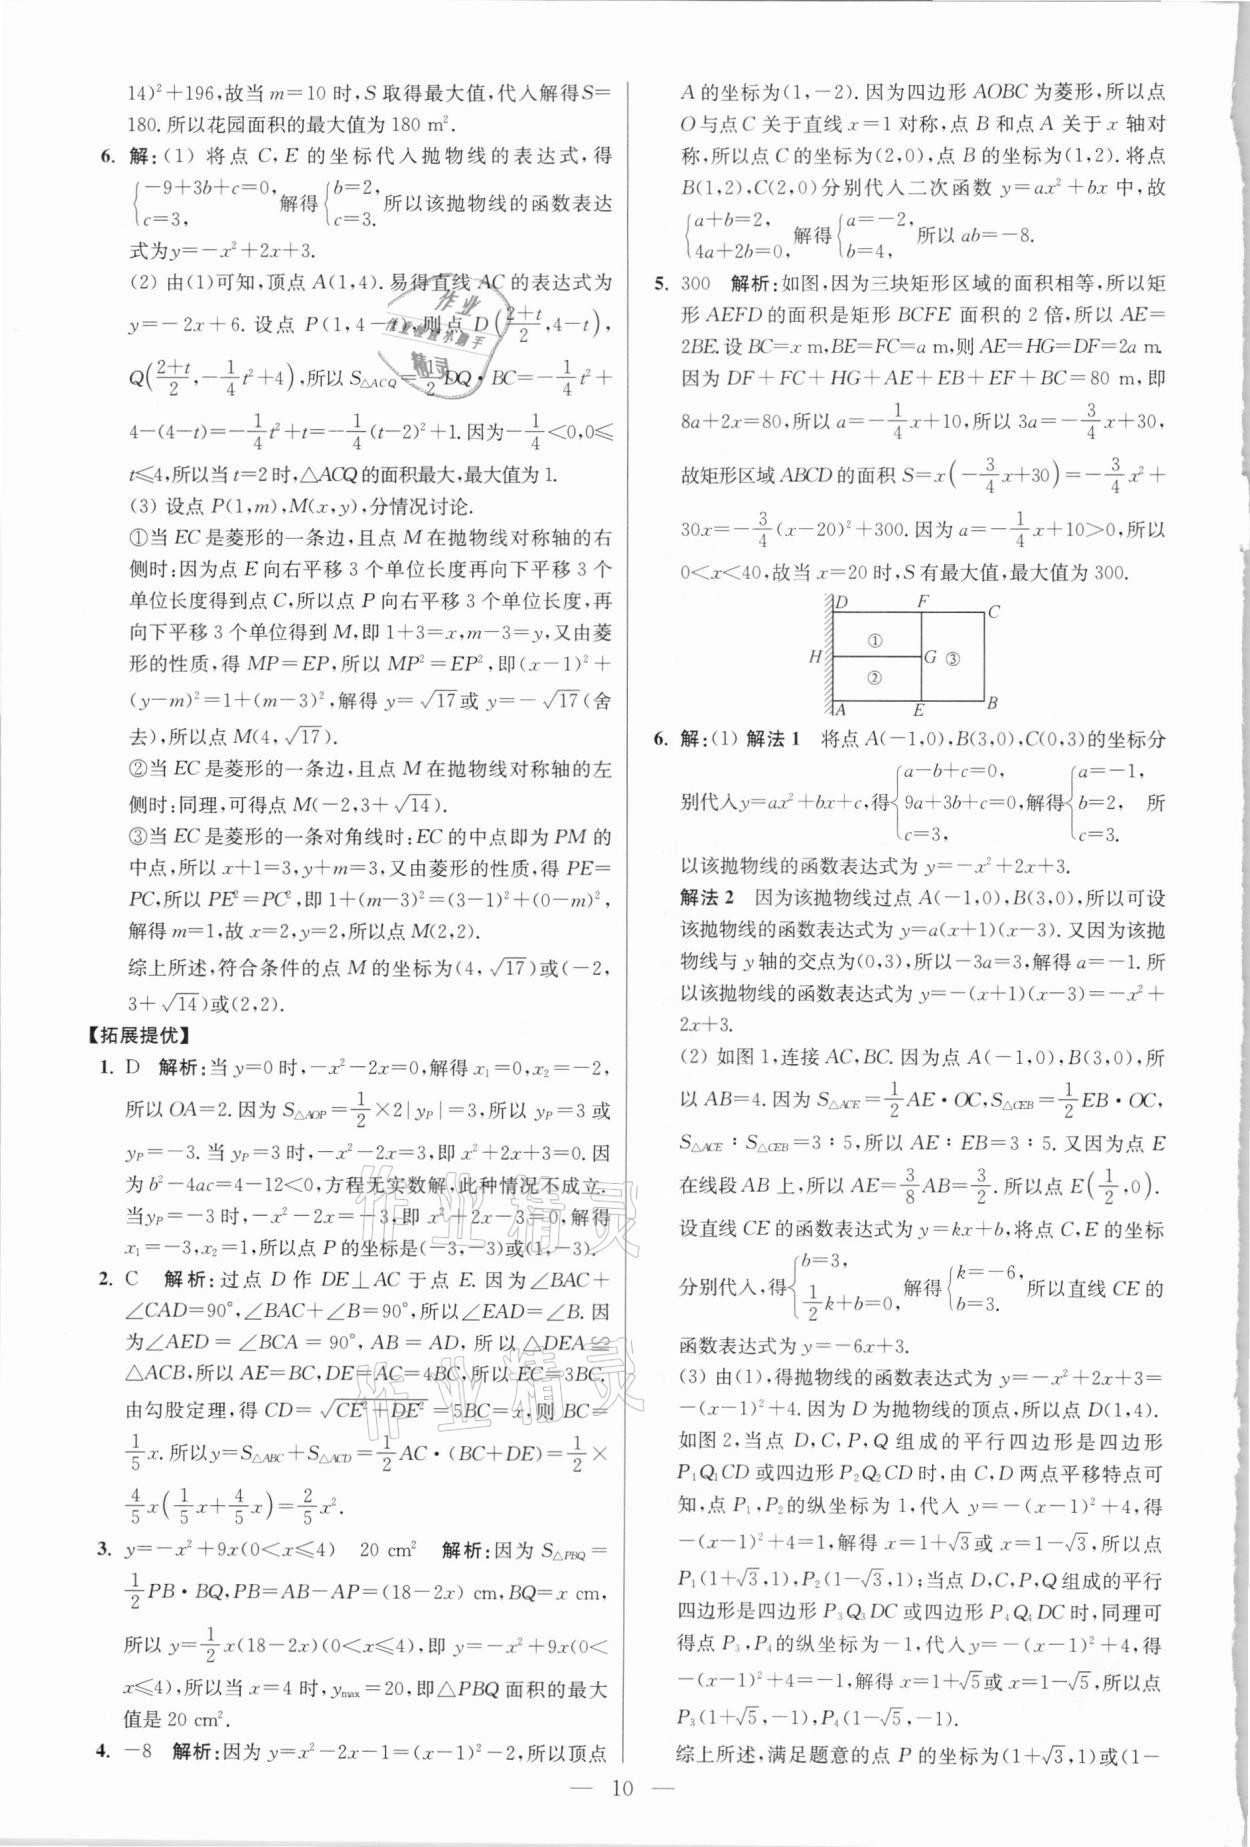 14)²+196,故当 m=10 时,S 取得最大值,代入解得S=
180.所以花园面积的最大值为 180 m².
6. 解:(1) 将点 C,E 的坐标代入抛物线的表达式,得
{-9+3b+c=0, c=3, 解得{b=2, c=3. 所以该抛物线的函数表达
式为y=-x²+2x+3.
(2) 由(1)可知,顶点 A(1,4).易得直线 AC 的表达式为
y=-2x+6. 设点 P(1,4-t),则点 D((2+t)/2,4-t),
Q((2+t)/2,-1/4t²+4),所以 S△ACQ=1/2DQ·BC=-1/4t²+
4-(4-t)=-1/4t²+t=-1/4(t-2)²+1.因为-1/4<0,0≤
t≤4,所以当 t=2 时,△ACQ的面积最大,最大值为 1.
(3) 设点 P(1,m),M(x,y),分情况讨论.
①当 EC是菱形的一条边,且点 M 在抛物线对称轴的右
侧时:因为点 E 向右平移 3 个单位长度再向下平移 3 个
单位长度得到点 C,所以点 P 向右平移 3 个单位长度,再
向下平移 3 个单位得到 M,即 1+3=x,m-3=y,又由菱
形的性质,得 MP=EP,所以 MP²=EP²,即(x-1)²+
(y-m)²=1+(m-3)²,解得 y=√17或 y=-√17(舍
去),所以点 M(4,√17).
②当 EC是菱形的一条边,且点 M 在抛物线对称轴的左
侧时:同理,可得点 M(-2,3+√14).
③当 EC是菱形的一条对角线时:EC 的中点即为 PM 的
中点,所以 x+1=3,y+m=3,又由菱形的性质,得 PE=
PC,所以 PE²=PC²,即 1+(m-3)²=(3-1)²+(0-m)²,
解得 m=1,故 x=2,y=2,所以点 M(2,2).
综上所述,符合条件的点 M 的坐标为(4,√17)或(-2,
3+√14)或(2,2).
【拓展提优】
1. D 解析:当 y=0 时,-x²-2x=0,解得 x₁=0,x₂=-2,
所以 OA=2.因为 S△AOP=1/2×2|yP|=3,所以 yP=3 或
yP=-3.当 yP=3 时,-x²-2x=3,即 x²+2x+3=0.因
为 b²-4ac=4-12<0,方程无实数解,此种情况不成立.
当yP=-3 时,-x²-2x=-3,即 x²+2x-3=0,解得
x₁=-3,x₂=1,所以点 P 的坐标是(-3,-3)或(1,-3).
2. C 解析:过点 D 作 DE⊥AC 于点 E.因为∠BAC+
∠CAD=90°,∠BAC+∠B=90°,所以∠EAD=∠B.因
为∠AED=∠BCA=90°,AB=AD,所以△DEA≌
△ACB,所以 AE=BC,DE=AC=4BC,所以 EC=3BC.
由勾股定理,得 CD=√(CE²+DE²)=5BC=x,则 BC=
1/5x.所以 y=S△ABC+S△ACD=1/2AC·(BC+DE)=1/2×
4/5x(1/5x+4/5x)=2/5x².
3. y=-x²+9x(0<x≤4) 20 cm² 解析:因为 S△PBQ=
1/2PB·BQ,PB=AB-AP=(18-2x) cm,BQ=x cm,
所以 y=1/2x(18-2x)(0<x≤4),即 y=-x²+9x(0<
x≤4),所以当 x=4 时,ymax=20,即△PBQ 面积的最大
值是 20 cm².
4. -8 解析:因为 y=x²-2x-1=(x-1)²-2,所以顶点
A 的坐标为(1,-2).因为四边形 AOBC 为菱形,所以点
O 与点 C 关于直线 x=1 对称,点 B 和点 A 关于 x 轴对
称,所以点 C 的坐标为(2,0),点 B 的坐标为(1,2).将点
B(1,2),C(2,0)分别代入二次函数 y=ax²+bx 中,故
{a+b=2, 4a+2b=0, 解得{a=-2, b=4, 所以 ab=-8.
5. 300 解析:如图,因为三块矩形区域的面积相等,所以矩
形 AEFD 的面积是矩形 BCFE 面积的 2 倍,所以 AE=
2BE.设 BC=x m,BE=FC=a m,则 AE=HG=DF=2a m.
因为 DF+FC+HG+AE+EB+EF+BC=80 m,即
8a+2x=80,所以 a=-1/4x+10,所以 3a=-3/4x+30,
故矩形区域 ABCD 的面积 S=x(-3/4x+30)=-3/4x²+
30x=-3/4(x-20)²+300.因为 a=-1/4x+10>0,所以
0<x<40,故当 x=20 时,S 有最大值,最大值为 300.
D F C
①
H G ③
②
A E B
6. 解:(1) 解法 1 将点 A(-1,0),B(3,0),C(0,3)的坐标分
别代入y=ax²+bx+c,得{a-b+c=0, 9a+3b+c=0, c=3, 解得{a=-1, b=2, c=3. 所
以该抛物线的函数表达式为 y=-x²+2x+3.
解法 2 因为该抛物线过点 A(-1,0),B(3,0),所以可设
该抛物线的函数表达式为 y=a(x+1)(x-3).又因为该抛
物线与 y 轴的交点为(0,3),所以-3a=3,解得 a=-1.所
以该抛物线的函数表达式为 y=-(x+1)(x-3)=-x²+
2x+3.
(2) 如图 1,连接 AC,BC.因为点 A(-1,0),B(3,0),所
以 AB=4.因为 S△ACE=1/2AE·OC,S△CEB=1/2EB·OC,
S△ACE∶S△CEB=3∶5,所以 AE∶EB=3∶5.又因为点 E
在线段 AB 上,所以 AE=3/8AB=3/2.所以点 E(1/2,0).
设直线 CE 的函数表达式为 y=kx+b,将点 C,E 的坐标
分别代入,得{b=3, 1/2k+b=0, 解得{k=-6, b=3. 所以直线 CE 的
函数表达式为 y=-6x+3.
(3) 由(1),得抛物线的函数表达式为 y=-x²+2x+3=
-(x-1)²+4.因为 D 为抛物线的顶点,所以点 D(1,4).
如图 2,当点 D,C,P,Q 组成的平行四边形是四边形
P₁Q₁CD 或四边形 P₂Q₂CD 时,由 C,D 两点平移特点可
知,点 P₁,P₂的纵坐标为 1,代入 y=-(x-1)²+4,得
-(x-1)²+4=1,解得 x=1+√3或 x=1-√3,所以点
P₁(1+√3,1),P₂(1-√3,1);当点 D,C,P,Q 组成的平行
四边形是四边形 P₃Q₃DC 或四边形 P₄Q₄DC 时,同理可
得点 P₃,P₄的纵坐标为-1,代入y=-(x-1)²+4,得
-(x-1)²+4=-1,解得 x=1+√5或 x=1-√5,所以点
P₃(1+√5,-1),P₄(1-√5,-1).
综上所述,满足题意的点 P 的坐标为(1+√3,1)或(1-
— 10 —
作业精灵
作业精灵